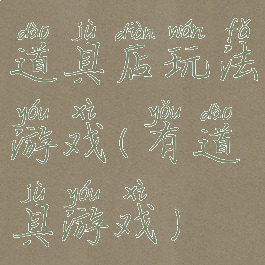 dào jù diàn wán fǎ
道具店玩法
yóu xì yǒu dào
游戏(有道
jù yóu xì
具游戏)